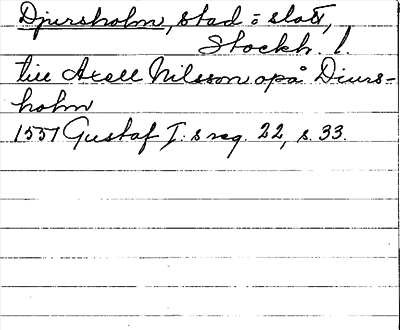 Djursholm, stad o slott,
Stockh. l.
till Axell Nilsson opå Diurs-
holm
1551 Gustaf I:s reg. 22, s. 33.